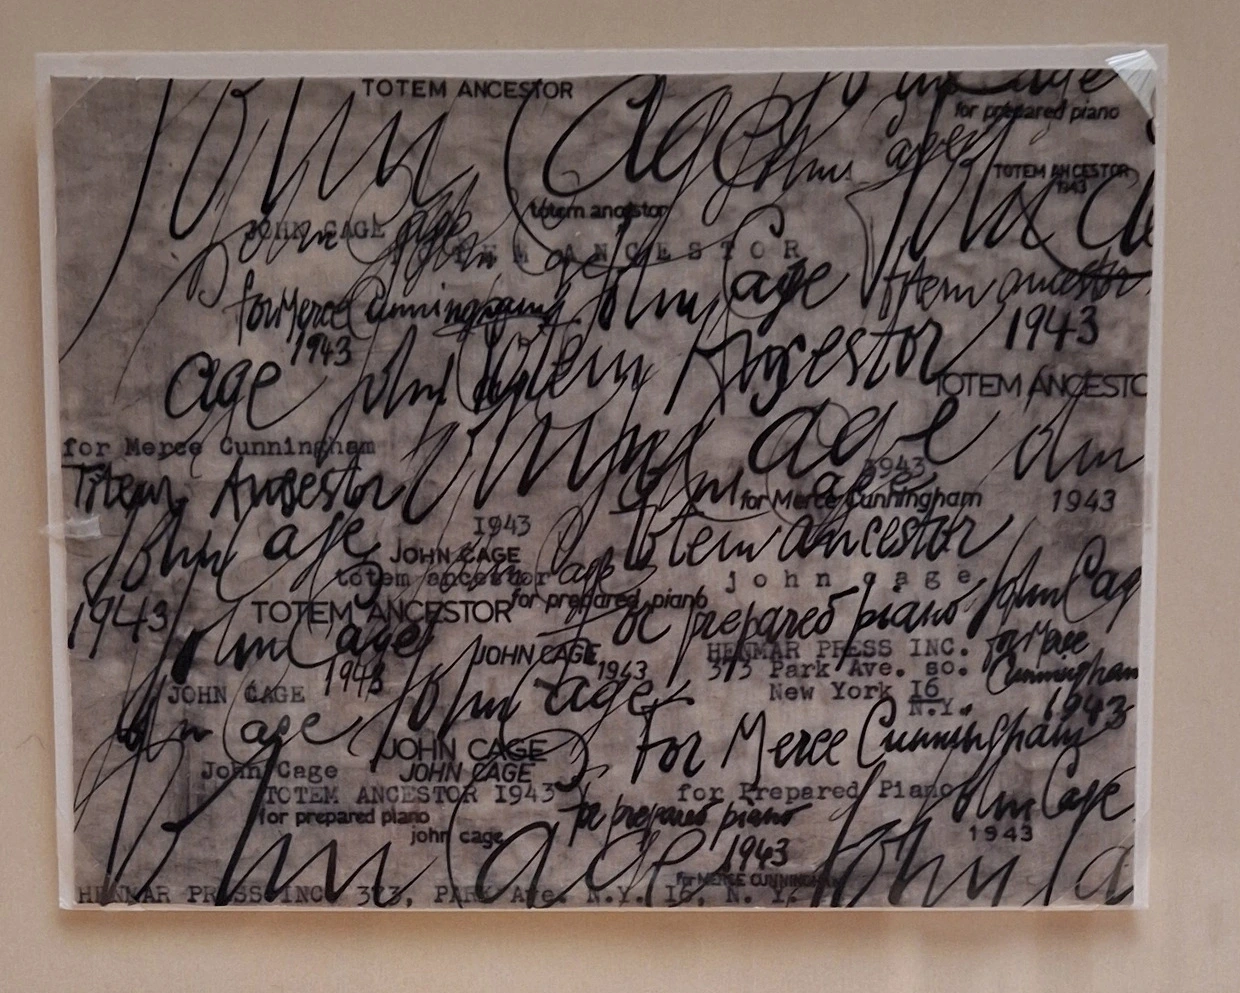 TOTEM ANCESTOR
John Cage
John Cage
for prepared piano
TOTEM ANCESTOR
1943
totem ancestor
JOHN CAGE
TOTEM ANCESTOR
for Merce Cunningham
1943
John Cage
totem ancestor
1943
age
John
Totem Ancestor
TOTEM ANCESTO
John Cage
for Merce Cunningham
1943
Totem Ancestor
for Merce Cunningham
1943
1943
totem ancestor
John Cage
JOHN CAGE
totem ancestor
john cage
John Cag
1943
TOTEM ANCESTOR
for prepared piano
for prepared piano
John Cage
1943
JOHN CAGE
1943
HENMAR PRESS INC.
373 Park Ave. so.
New York 16
N.Y.
for Merce
Cunningham
1943
JOHN CAGE
John Cage
John Cage
For Merce Cunningham
JOHN CAGE
John Cage
JOHN CAGE
TOTEM ANCESTOR 1943
for Prepared Piano
John Cage
for prepared piano
for prepared piano
john cage
1943
1943
John Cage
John Ca
for MERCE CUNNINGHAM
HENMAR PRESS INC. 373, PARK Ave. N.Y. 16, N. Y.